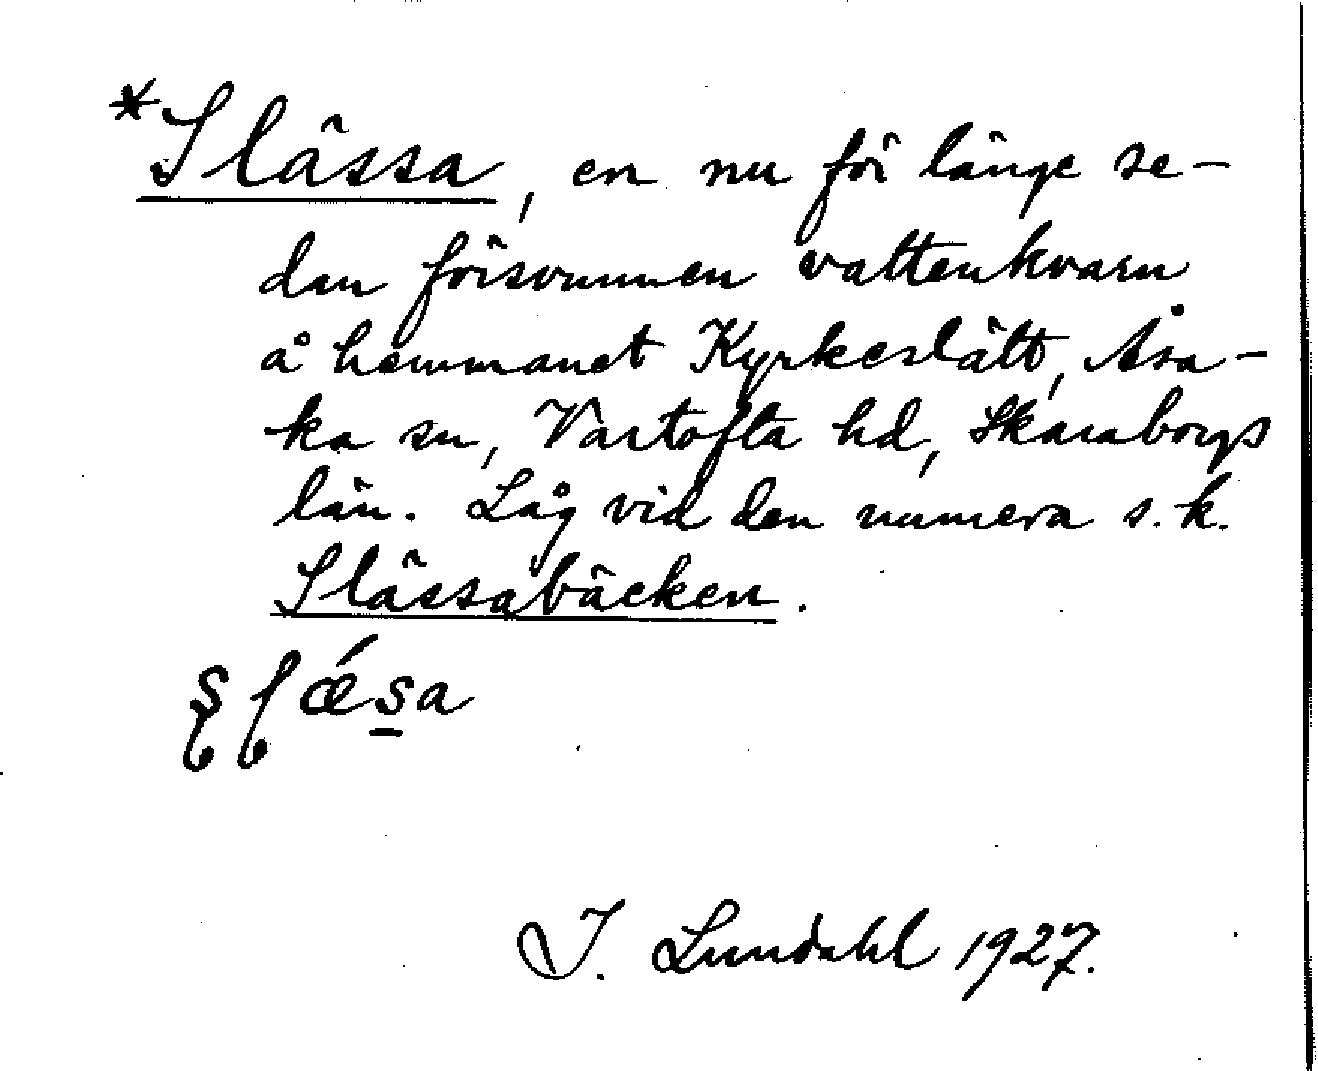 *Slässa, en nu för länge se-
dan försvunnen vattenkvarn
å hemmanet Kyrkeslätt, Åsa-
ka sn, Vartofta hd, Skaraborgs
län. Låg vid den numera s.k.
Slässabäcken.
I. Lundahl 1927.